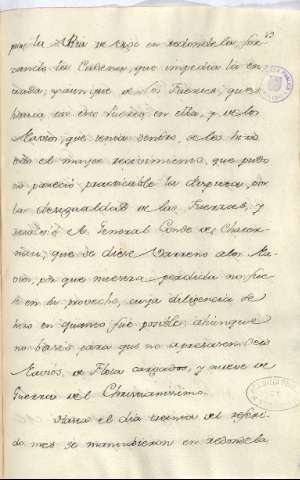 por la Ria de Vigo en redondela, for
zando la Cadena, que impedia la en
trada; y aunque de los Fuertes, que
en ella, y de los
Navios, que tenia dentro, se les hizo
todo el mayor recivimiento, que pudo
no pareció practicable la defensa, por
la desigualdad de las Fuerzas, y
el General Conde de
que se diese Varreno a los Na
vios, por que nuestra perdida no fue
se en su provecho, cuya diligencia se
hizo en quanto fue posible, aunque
no bastó, para que no apresasen seis
Navios, de Flota cargados, y nueve de
Guerra del Christianisimo.
Hasta el dia treinta del referi
do mes se mantubieron en redondela